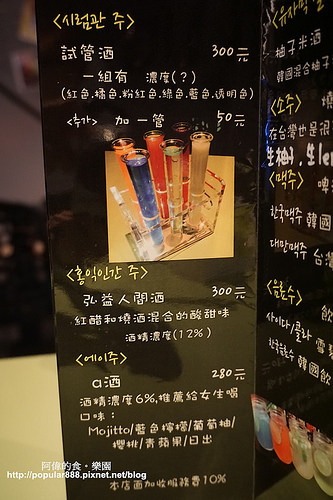 <시험관 주>
試管酒 300元
一組有 濃度(?)
(紅色.橘色.粉紅色.綠色.藍色.透明色)
<추가> 加一管 50元
<홍익인간 주>
弘益人間酒 300元
紅醋和燒酒混合的酸甜味
酒精濃度(12%)
<에이주>
a酒 280元
酒精濃度6%,推薦給女生喝
口味:
Mojitto/藍色檸檬/葡萄柚/
櫻桃/青蘋果/日出
本店面加收服務費10%
柚子米酒
韓國混合柚子
<소주>
在台灣也是很
<맥주> 啤
한국맥주 韓國
대만맥주 台灣
<음료수> 飲
사이다/콜라 雪
韓國飲
阿偉的食‧樂園
http://popular888.pixnet.net/blog